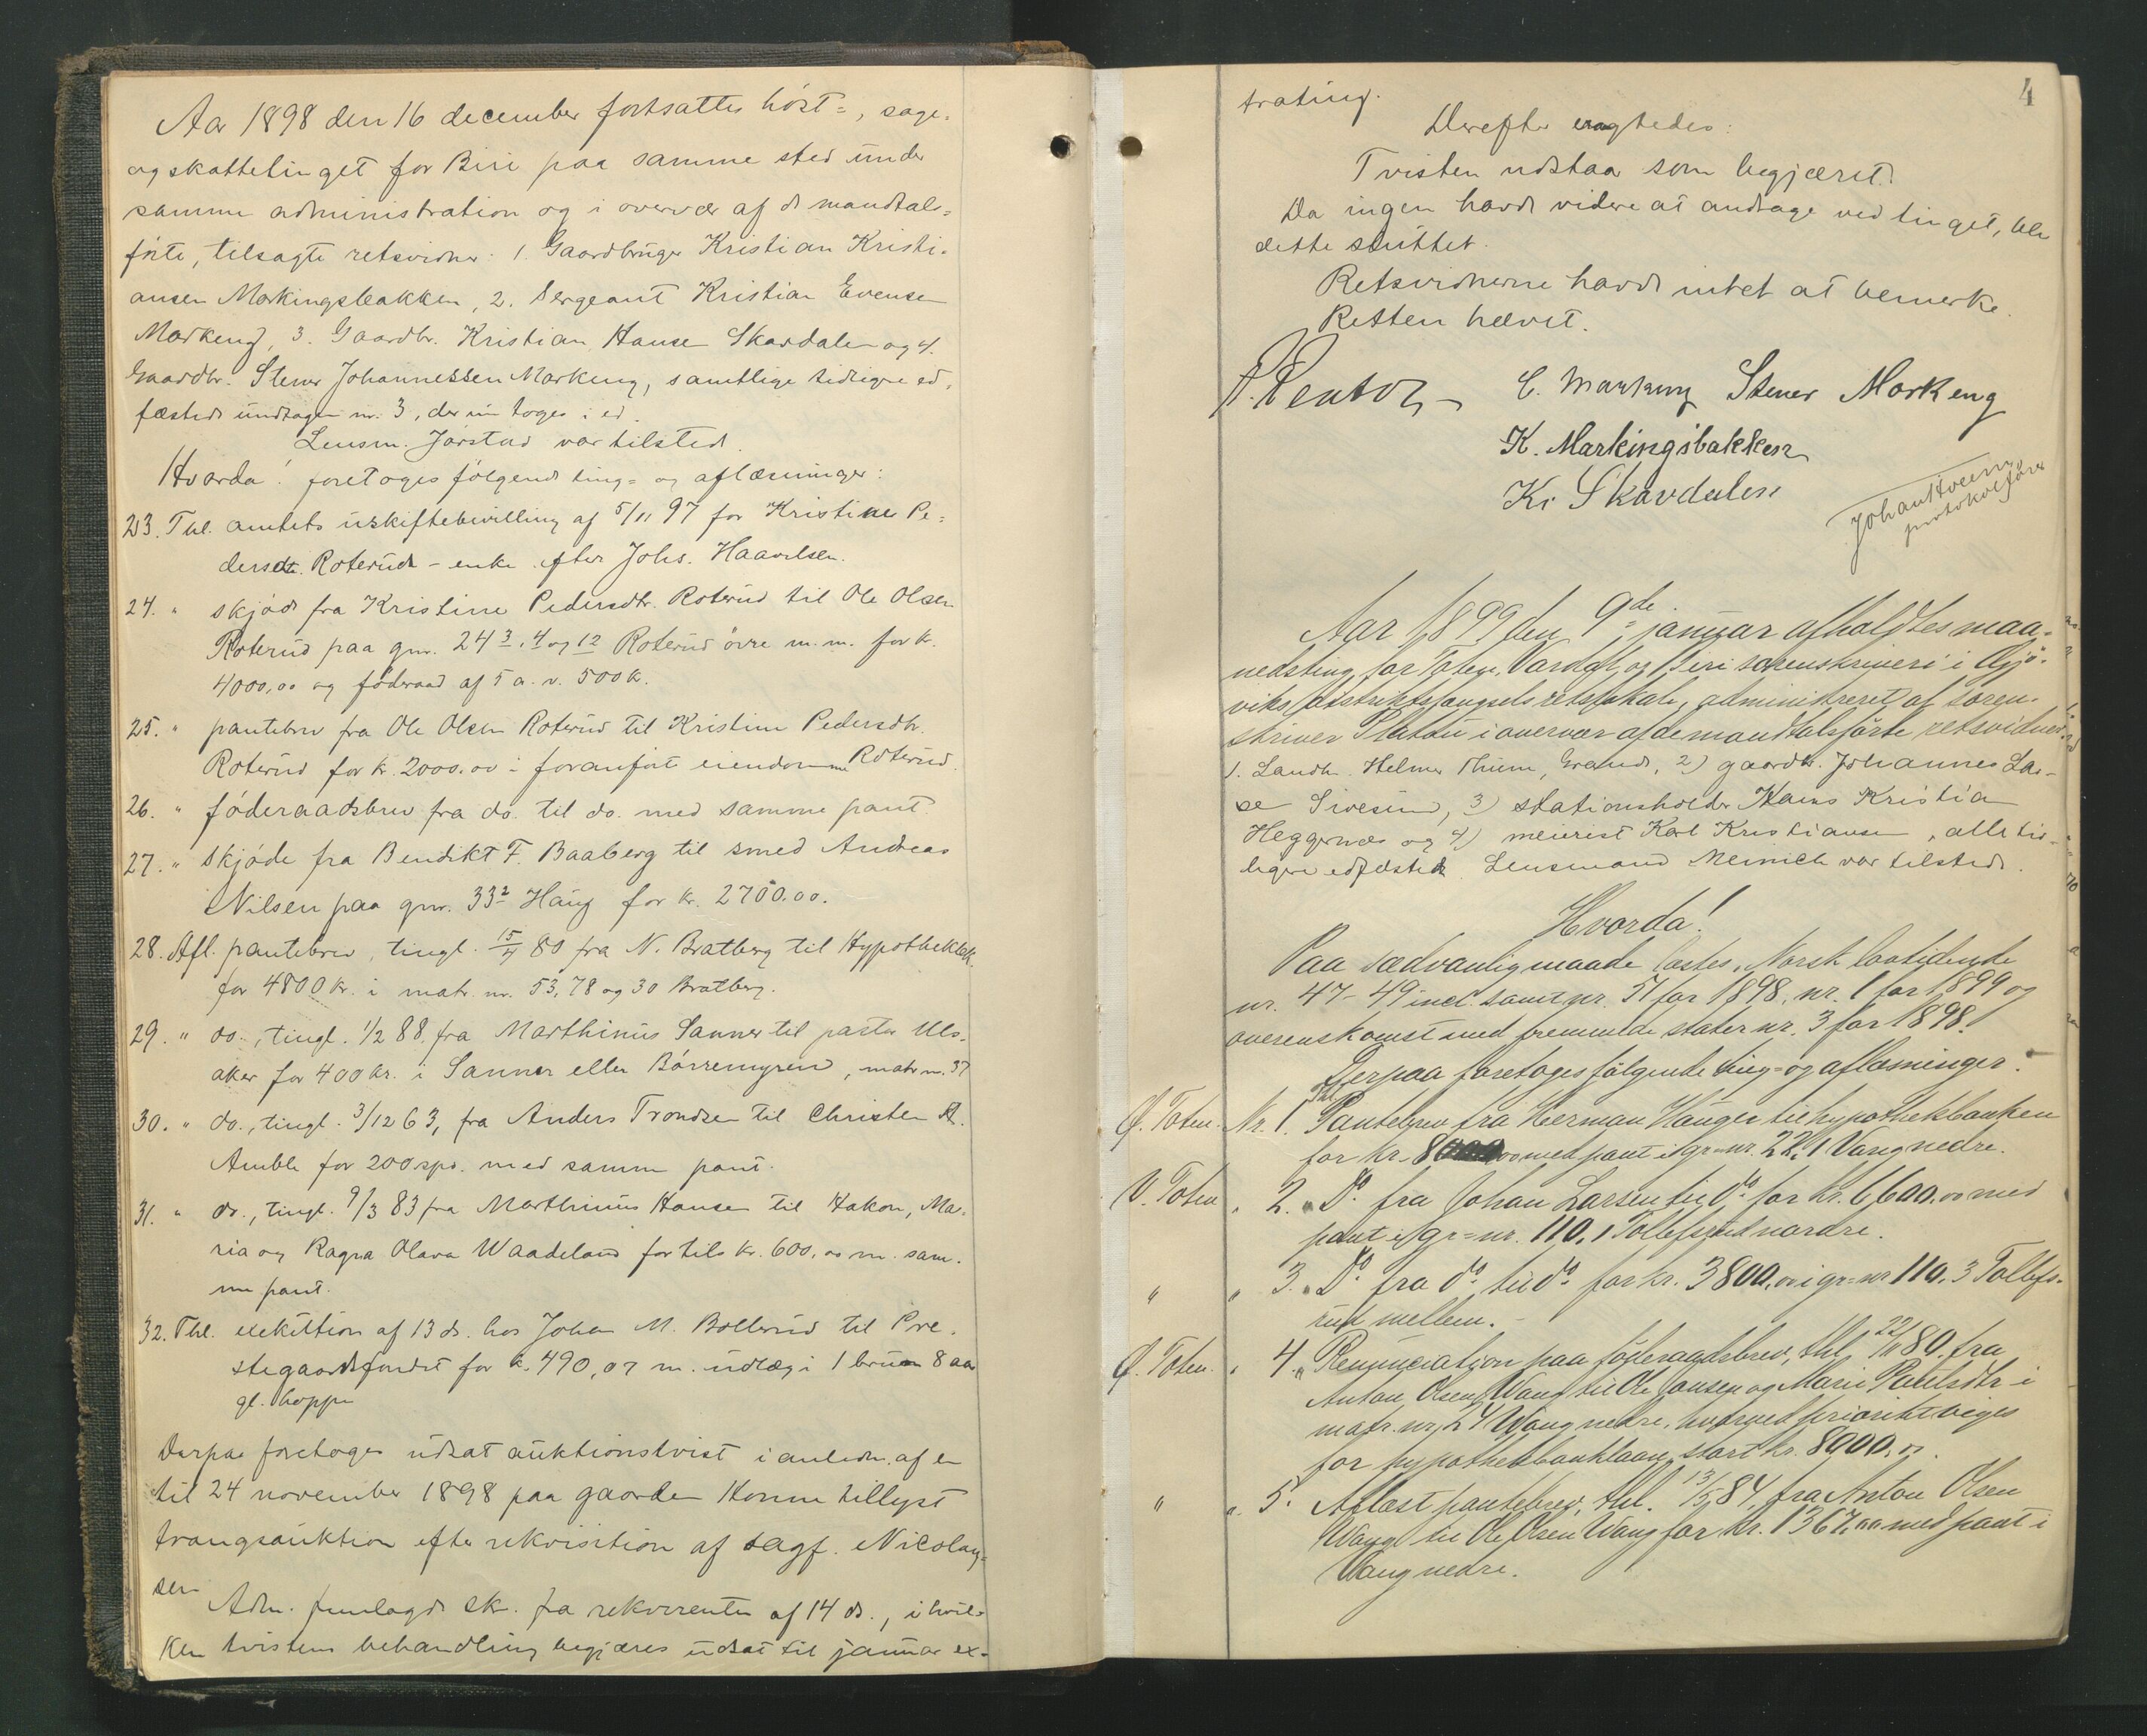 Aar 1898 den 16 december fortsattes höst=, sage-
og skattetinget for Biri paa samme sted under
samme administration og i overvær af de mandtals-
förte, tilsagte retsvidner: 1. Gaardbruger Kristian Kristi-
ansen Markingsbakken, 2. Sergeant Kristian Evensen
Markeng, 3. Gaardbr. Kristian Hansen Skardalen og 4.
Gaardbr. Stener Johannessen Markeng, samtlige tidligere ed-
fæstede undtagen nr. 3, der nu toges i ed
Lensm. Jörstad var tilsted.
Hvorda! foretoges fölgende ting= og aflæsninger:
23. Thl. amtets uskiftebevilling af 5/11 97 for Kristine Pe-
dersdtr. Roterud - enke efter Johs. Haavelsen.
24. " skjöde fra Kristine Pedersdtr. Roterud til Ole Olsen
Roterud paa gnr. 24 3, 4 og 12 Roterud övre m.m. for k.
4000,00 og föderaad af 5 a. v. 500 k.
25. " pantebrev fra Ole Olsen Roterud til Kristine Pedersdtr.
Roterud for kr. 2000.00 i foranfört eiendomme Roterud.
26. " föderaadsbrev fra do. til do. med samme pant
27. " skjöde fra Bendikt F. Baaberg til smed Andreas
Nilsen paa gnr. 33 2 Haug for kr. 2700.00.
28. Afl. pantebrev, tingl. 15/4 80 fra N. Bratberg til Hypothekbk.
for 4800 kr. i matr. nr. 53, 78 og 30 Bratberg.
29. " do., tingl. 1/2 88, fra Marthinus Sanner til pastor Uls-
aker for 400 kr. i Sanner eller Börremyren, matr nr. 37
30. " do., tingl. 3/12 63, fra Anders Trondsen til Christen A.
Amble for 200 spd. med samme pant.
31. " do., tingl. 9/3 83 fra Marthinus Hansen til Hakon, Ma-
ria og Ragna Olava Waadeland for tils kr. 600,00 m. sam-
me pant.
32. Thl. exekution af 13 ds. hos Johan M. Bollerud til Præ-
stegaardsfondet for k. 490,07 m. udlæg i 1 brun 8 aar
gl. hoppe
Derpaa foretoges udsat auktionstvist i anledn. af en
til 24 november 1898 paa gaarden Honne tillyst
tvangsauktion efter rekvisition af sagf. Nicolay-
sen
Adm. fremlagde sk. fra rekvirenten af 14 ds., i hvil-
ken tvistens behandling begjæres udsat til januar ex-
4
trating.
Derefter eragtedes:
Tvisten udstaar som begjæret.
Da ingen havde videre at andrage ved tinget, blev
dette sluttet.
Retsvidnerne havde intet at bemerke.
Retten hævet.
C. Markeng Stener Markeng
K. Markingsbakken
Kr Skavdalen
Johan Hveem
protokolförer
Aar 1899 den 9de januar afholdtes maa-
nedsting for Toten, Vardal og Biri sorenskriveri i Gjö-
viks distriktsfængsels retslokale, administreret af soren-
skriver Platou i overvær af de mandtalsförte retsvidner
1. Landh. Helmer Thune, Grande, 2) gaardbr. Johannes Lar-
sen Sivesind, 3) stationsholder Hans Kristian
Heggernæs og 4) meierist Karl Kristiansen, alle tid-
ligere edfæstede. Lensmand Meinich var tilstede.
Hvorda!
Paa sædvanlig maade læstes Norsk lovtidende
nr. 47-49 incl. samt nr. 51 for 1898, nr. 1 for 1899 og
overenskomst med fremmede stater nr. 3 for 1898.
Derpaa foretoges fölgende ting= og aflæsninger:
Ö. Toten. Nr. 1. Thl. Pantebrev fra Herman Hanger til hypothekbanken
for kr. 8000.00 med pant i gr=nr. 22,1 Vang nedre.
V. Toten " 2. " Do. fra Johan Larsen til do. for kr. 6600.00 med
pant i gr=nr. 110,1 Tollefsrud nordre.
" " 3. " Do. fra do. til do. for kr. 3800,00 i gr=nr 110.3 Tollefs-
rud mellem.
Ö. Toten. " 4. " Renunciation paa föderaadsbrev, thl. 22/11 80, fra
Anton Olsen Wang til Ole Jonsen og Marie Poulsdtr i
matr. nr. 24 Wang nedre, hvorved prioritet viges
for hypothekbanklaan, stort kr. 8000.00.
" " 5. Aflæst pantebrev, thl. 13/5 84, fra Anton Olsen
Wang til Ole Olsen Wang for kr. 1367,00 med pant i
Vang nedre.